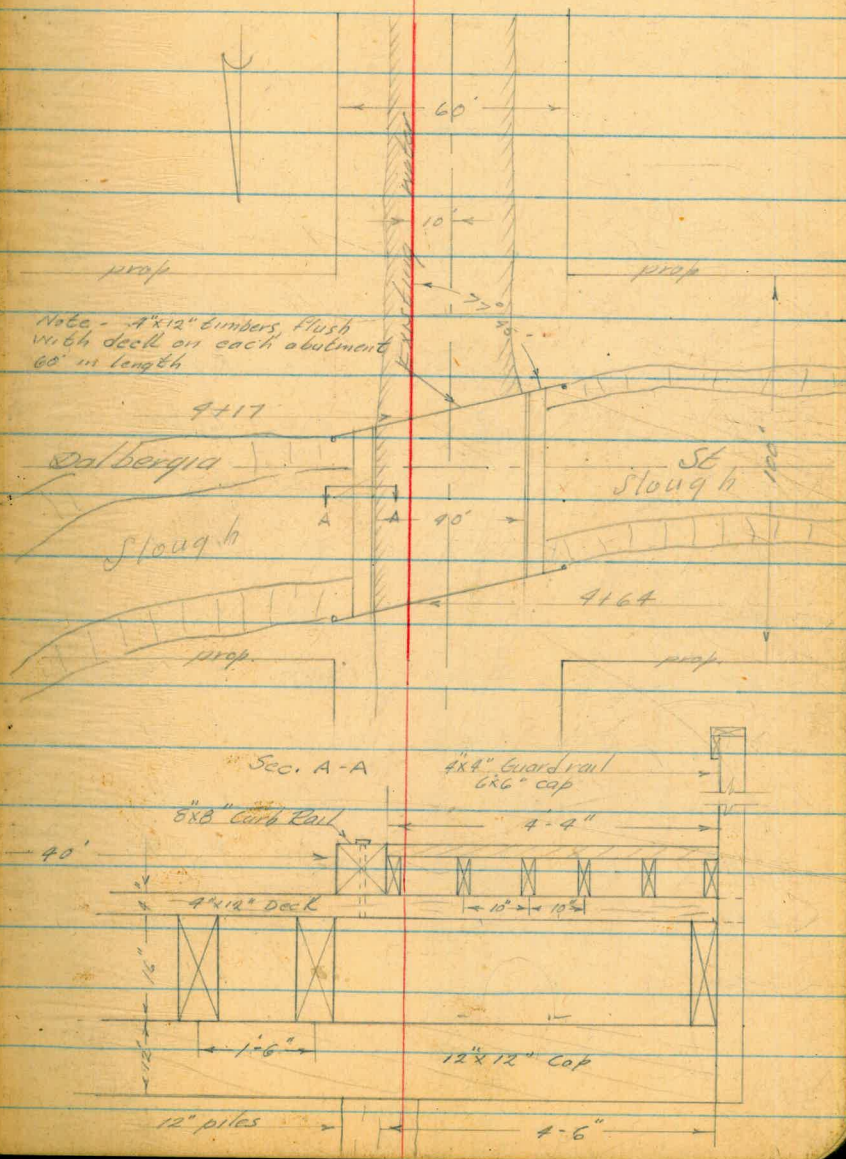 60'
10'
Existing water
prop
prop
Note - 4"x12" timbers, flush
with deck on each abutment
60' in length
4+17
Dalbergia
St
Slough
100'
A
A
40'
Slough
4+64
prop.
prop.
Sec. A-A
4"x4" Guard rail
6"x6" cap
8"x8" Curb Rail
4'-4"
40'
4"
4"x12" Deck
10"
10"
16"
1'-6"
12"
12"x12" Cap
12" piles
4'-6"